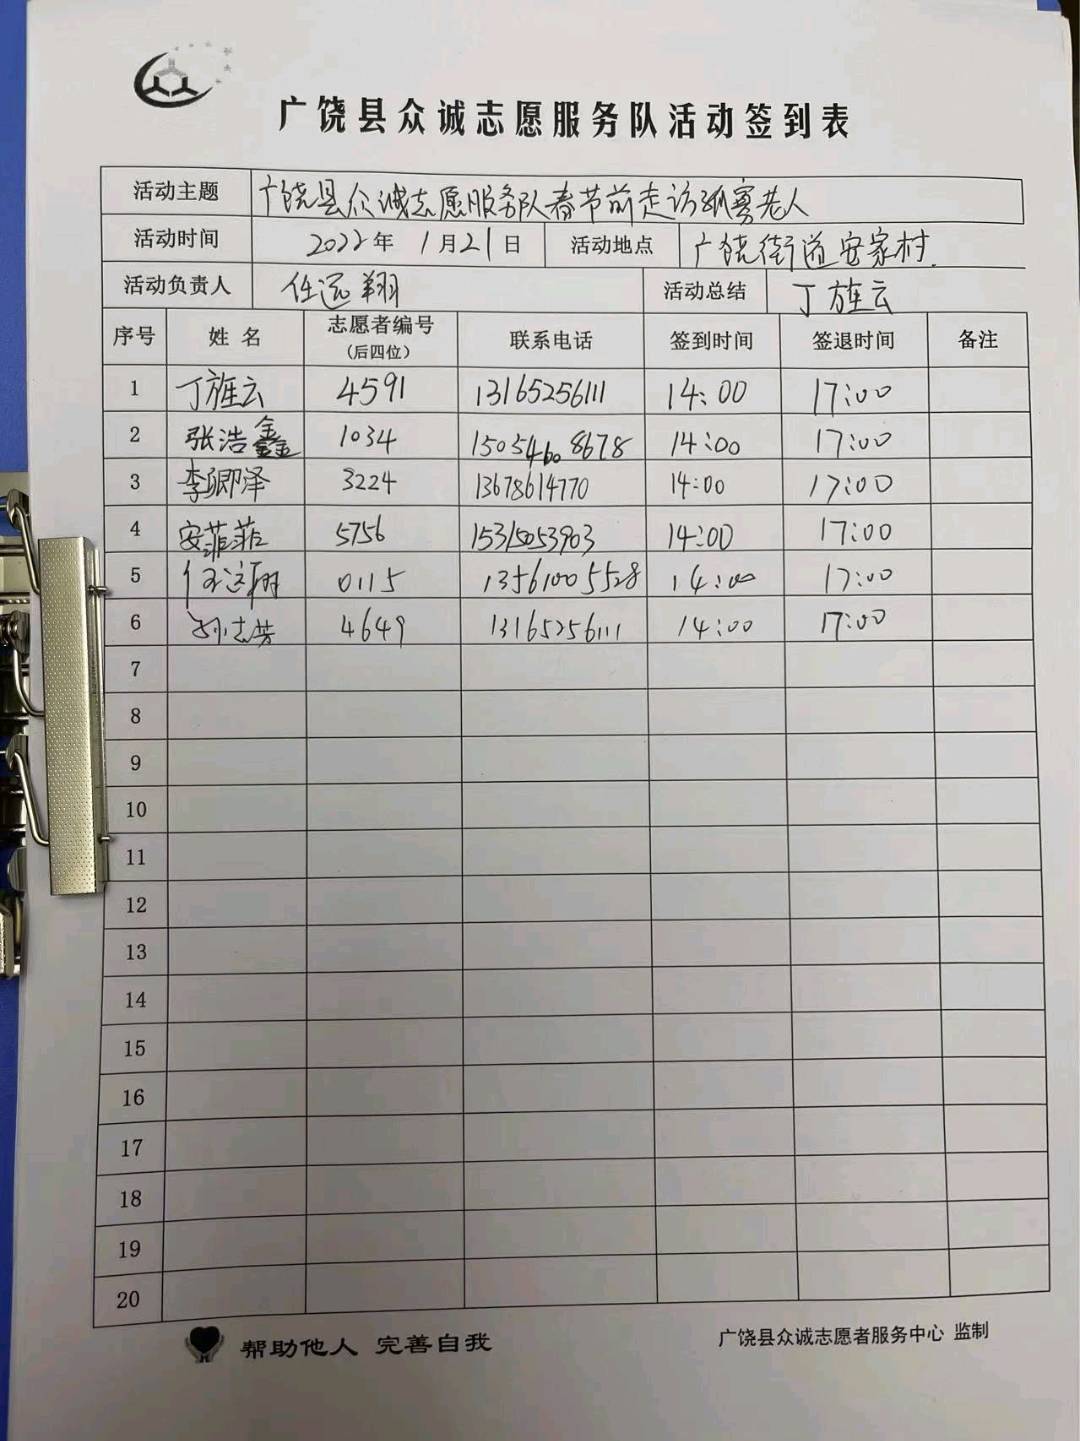 广饶县众诚志愿服务队活动签到表
活动主题 广饶县众诚志愿服务队春节前走访孤寡老人
活动时间 2022年 1月21日 活动地点 广饶街道安家村.
活动负责人 任远翔 活动总结 丁旌云
序号 姓名 志愿者编号 (后四位) 联系电话 签到时间 签退时间 备注
1 丁旌云 4591 13165256111 14:00 17:00
2 张浩鑫 1034 15054608678 14:00 17:00
3 李卿泽 3224 13678614770 14:00 17:00
4 安菲菲 5756 15315053903 14:00 17:00
5 任远翔 0115 13561005528 14:00 17:00
6 孙志芳 4649 13165256111 14:00 17:00
7
8
9
10
11
12
13
14
15
16
17
18
19
20
帮助他人 完善自我 广饶县众诚志愿者服务中心 监制